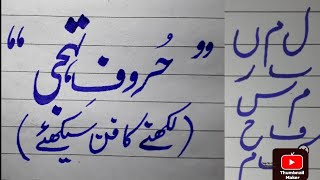 ”حُروفِ تہجی“
(لکھنے کا فن سیکھئے)
ل م ں
ب ر
م س
ف ح
م
Thumbnail Maker